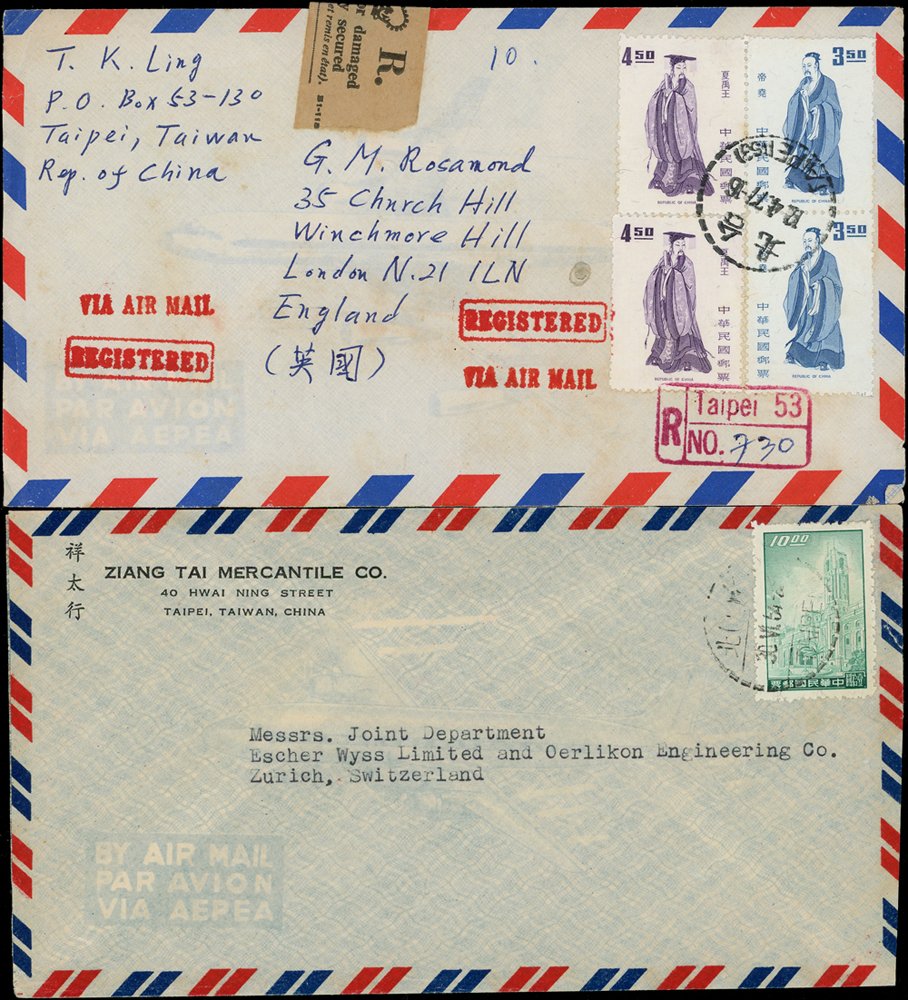 T. K. Ling
P.O. Box 53-130
Taipei, Taiwan
Rep. of China
R.
or damaged
y secured
et remis en état)
B1-118
10.
G. M. Rosamond
35 Church Hill
Winchmore Hill
London N.21 1LN
England
(英國)
VIA AIR MAIL
REGISTERED
REGISTERED
VIA AIR MAIL
PAR AVION
VIA AEPEA
4 50
夏禹王
中華民國郵票
REPUBLIC OF CHINA
3 50
帝堯
中華民國郵票
REPUBLIC OF CHINA
4 50
夏禹王
中華民國郵票
REPUBLIC OF CHINA
3 50
中華民國郵票
REPUBLIC OF CHINA
台北
12.4.77.-16
R
Taipei 53
NO. 730
祥太行
ZIANG TAI MERCANTILE CO.
40 HWAI NING STREET
TAIPEI, TAIWAN, CHINA
10.00
票郵國民華中
Messrs. Joint Department
Escher Wyss Limited and Oerlikon Engineering Co.
Zurich, Switzerland
BY AIR MAIL
PAR AVION
VIA AEPEA